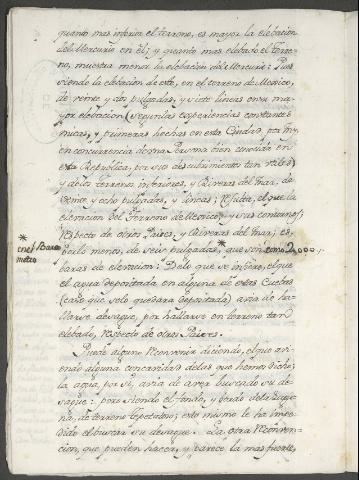 quanto mas inferior el terreno, es mayor la elebacion
del Mercurio en él; y quanto mas elebado el terre-
no, muestra menor la elebacion del Mercurio: Pues
siendo la elebacion de este, en el terreno de Mexico,
de veinte y dos pulgadas, y siete lineas en su ma-
yor elebacion (segun las experiencias constante-
mitas, y primeras hechas en esta Ciudad, por my,
en concurrencia de una Persona bien conocida en
esta Republica, por sus descubrimientos tan utiles)
y de los terrenos inferiores, y Riveras del Mar, de
veinte y ocho pulgadas, y lineas; Resulta, el que la
elevacion del Terreno de Mexico, y sus contornos,
respecto de otros Paises, y Riveras del Mar; es,
por lo menos, de seis pulgadas,* que son como 2,000.,
* en el Baro-
metro
baras de elevacion: De lo que se infiere, el que
el agua depositada en alguna de estas Cuebas
(caso que solo quedara depositada) avia de ha-
llarse desague, por hallarse en terreno tan
elebado, respecto de otros Paises.
Puede alguno reconvenir diciendo, el que avi-
endo alguna concavidad de las que hemos dicho;
la agua, por sí, avia de aver buscado su de-
sague: pero siendo el fondo, y bordo de la Lagu-
na, de terreno tepetatoso; esto mismo le ha impe-
dido el buscar su desague. La otra Reconven-
cion, que pueden hacer, y parece la mas fuerte,